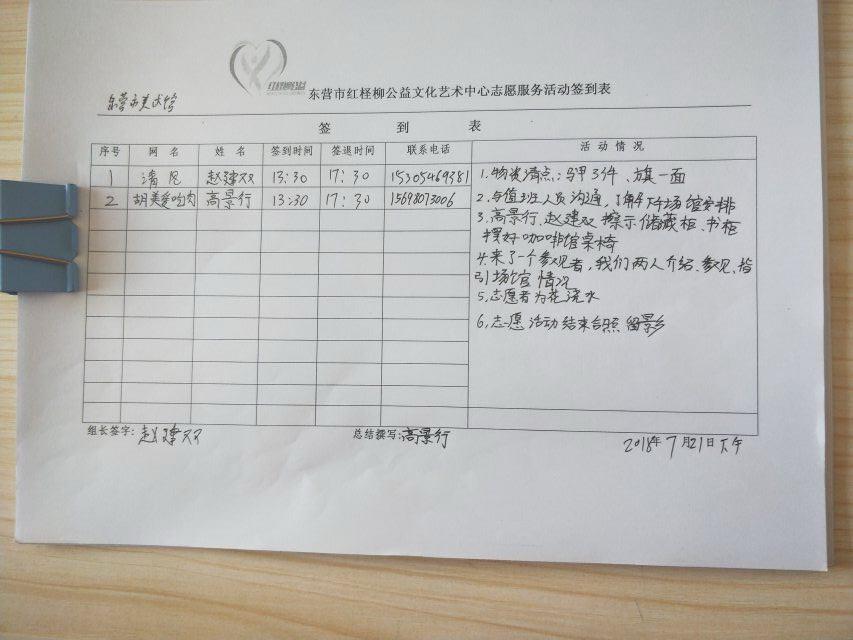 红柽柳公益
东营市红柽柳公益文化艺术中心志愿服务活动签到表
东营市美术馆
签到表
序号 网名 姓名 签到时间 签退时间 联系电话 活动情况
1 清风 赵建双 13:30 17:30 15305469381
2 胡美 吃肉 高景行 13:30 17:30 15698073006
1.物资清点:马甲3件、旗一面
2.与值班人员沟通,了解下午场馆安排
3.高景行、赵建双擦示储藏柜、书柜
摆好咖啡馆桌椅
4.来了一个参观者,我们两人介绍、参观、指
引场馆情况
5.志愿者为花浇水
6.志愿活动结束合照留影
组长签字:赵建双 总结撰写:高景行 2018年7月21日下午